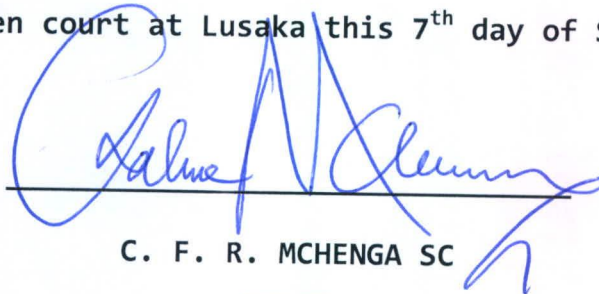 en court at Lusaka this 7th day of S
C. F. R. MCHENGA SC